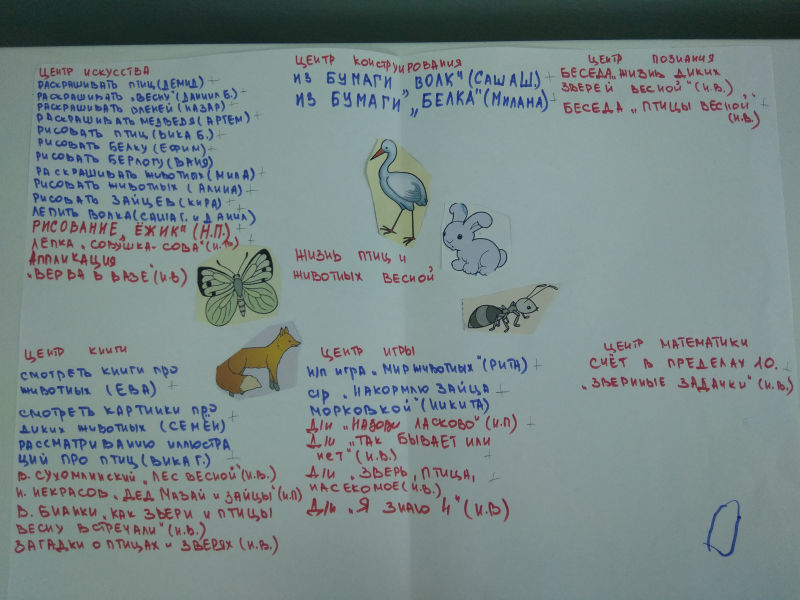 ЦЕНТР ИСКУССТВА
РАСКРАШИВАТЬ ПТИЦ (ДЕМИД)
РАСКРАШИВАТЬ „ВЕСНУ" (ДАНИИЛ Б.)
РАСКРАШИВАТЬ ОЛЕНЕЙ (НАЗАР)
РАСКРАШИВАТЬ МЕДВЕДЯ (АРТЕМ)
РИСОВАТЬ ПТИЦ (ВИКА Б.)
РИСОВАТЬ БЕЛКУ (ЕФИМ)
РИСОВАТЬ БЕРЛОГУ (ВАНЯ)
РАСКРАШИВАТЬ ЖИВОТНЫХ (МИЛА)
РИСОВАТЬ ЖИВОТНЫХ (АЛИНА)
РИСОВАТЬ ЗАЙЦЕВ (КИРА)
ЛЕПИТЬ ВОЛКА (САША Г. И ДАНИЛ)
РИСОВАНИЕ „ЁЖИК" (Н.П.)
ЛЕПКА „СОВУШКА-СОВА" (Н.П.)
АППЛИКАЦИЯ
„ВЕРБА В ВАЗЕ" (И.В)
ЦЕНТР КОНСТРУИРОВАНИЯ
ИЗ БУМАГИ „ВОЛК" (САША Ш.)
ИЗ БУМАГИ „БЕЛКА" (МИЛАНА)
ЦЕНТР ПОЗНАНИЯ
БЕСЕДА „ЖИЗНЬ ДИКИХ
ЗВЕРЕЙ ВЕСНОЙ" (И.В.)
БЕСЕДА „ПТИЦЫ ВЕСНОЙ"
(И.В.)
ЖИЗНЬ ПТИЦ И
ЖИВОТНЫХ ВЕСНОЙ
ЦЕНТР КНИГИ
СМОТРЕТЬ КНИГИ ПРО
ЖИВОТНЫХ (ЕВА)
СМОТРЕТЬ КАРТИНКИ ПРО
ДИКИХ ЖИВОТНЫХ (СЕМЁН)
РАССМАТРИВАНИЮ ИЛЛЮСТРА
ЦИЙ ПРО ПТИЦ (ВИКА Г.)
В. СУХОМЛИНСКИЙ „ЛЕС ВЕСНОЙ" (И.В.)
Н. НЕКРАСОВ „ДЕД МАЗАЙ И ЗАЙЦЫ" (Н.П)
В. БИАНКИ „КАК ЗВЕРИ И ПТИЦЫ
ВЕСНУ ВСТРЕЧАЛИ" (И.В.)
ЗАГАДКИ О ПТИЦАХ И ЗВЕРЯХ (И.В.)
ЦЕНТР ИГРЫ
Н/П ИГРА „МИР ЖИВОТНЫХ" (РИТА)
С/Р „НАКОРМЛЮ ЗАЙЦА
МОРКОВКОЙ" (НИКИТА)
Д/И „НАЗОВИ ЛАСКОВО" (Н.П)
Д/И „ТАК БЫВАЕТ ИЛИ
НЕТ" (И.В.)
Д/И „ЗВЕРЬ, ПТИЦА,
НАСЕКОМОЕ (И.В.)
Д/И „Я ЗНАЮ 4" (И.В)
ЦЕНТР МАТЕМАТИКИ
СЧЁТ В ПРЕДЕЛАХ 10.
„ЗВЕРИНЫЕ ЗАДАЧКИ" (И.В.)